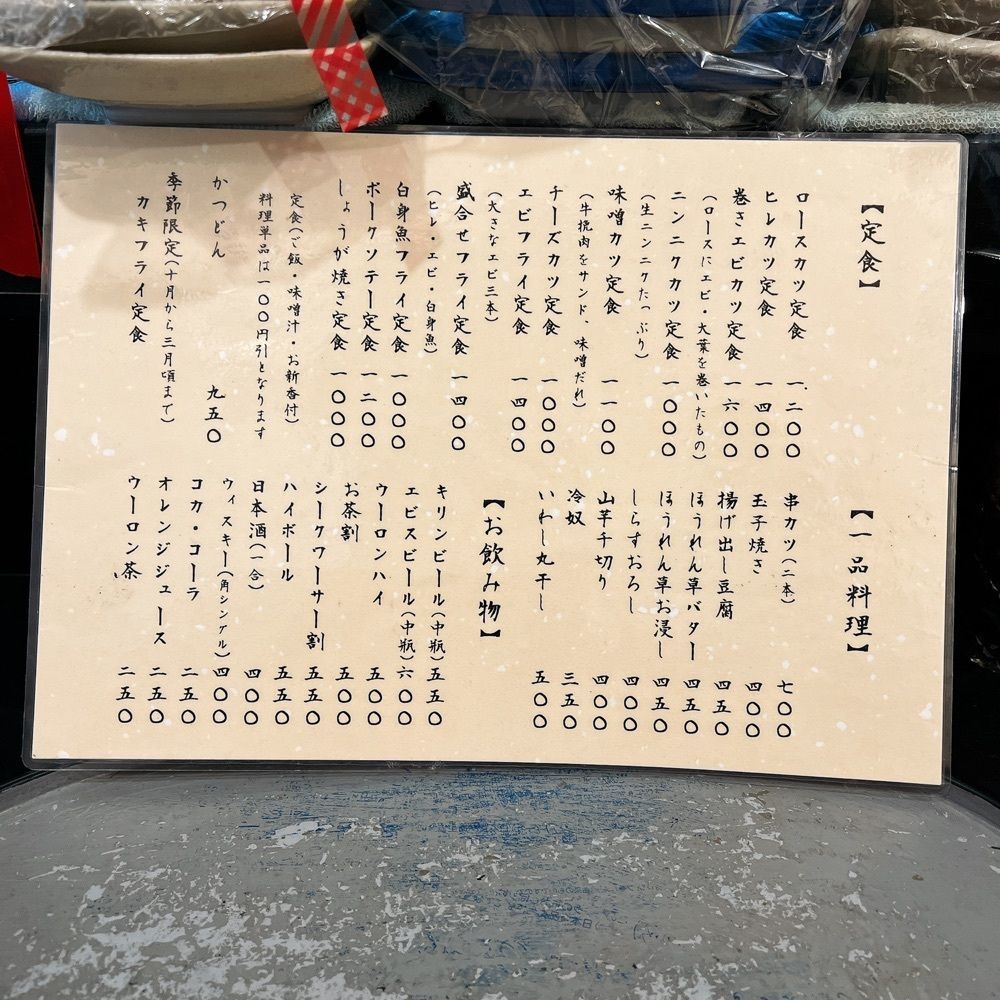 【定食】
ロースカツ定食 一、二〇〇
ヒレカツ定食 一四〇〇
巻きエビカツ定食 一六〇〇
（ロースにエビ・大葉を巻いたもの）
ニンニクカツ定食 一〇〇〇
（生ニンニクたっぷり）
味噌カツ定食 一一〇〇
（牛挽肉をサンド、味噌だれ）
チーズカツ定食 一〇〇〇
エビフライ定食 一四〇〇
（大きなエビ三本）
盛合せフライ定食 一四〇〇
（ヒレ・エビ・白身魚）
白身魚フライ定食 一〇〇〇
ポークソテー定食 一二〇〇
しょうが焼き定食 一〇〇〇
定食（ご飯・味噌汁・お新香付）
料理単品は一〇〇円引となります
かつどん 九五〇
季節限定（十月から三月頃まで）
カキフライ定食
【一品料理】
串カツ（二本） 七〇〇
玉子焼き 四〇〇
揚げ出し豆腐 四五〇
ほうれん草バター 四五〇
ほうれん草お浸し 四五〇
しらすおろし 四〇〇
山芋千切り 四〇〇
冷奴 三五〇
いわし丸干し 五〇〇
【お飲み物】
キリンビール（中瓶） 五五〇
エビスビール（中瓶） 六〇〇
ウーロンハイ 五〇〇
お茶割 五〇〇
シークワーサー割 五五〇
ハイボール 五五〇
日本酒（一合） 四〇〇
ウィスキー（角シングル） 四〇〇
コカ・コーラ 二五〇
オレンジジュース 二五〇
ウーロン茶 二五〇